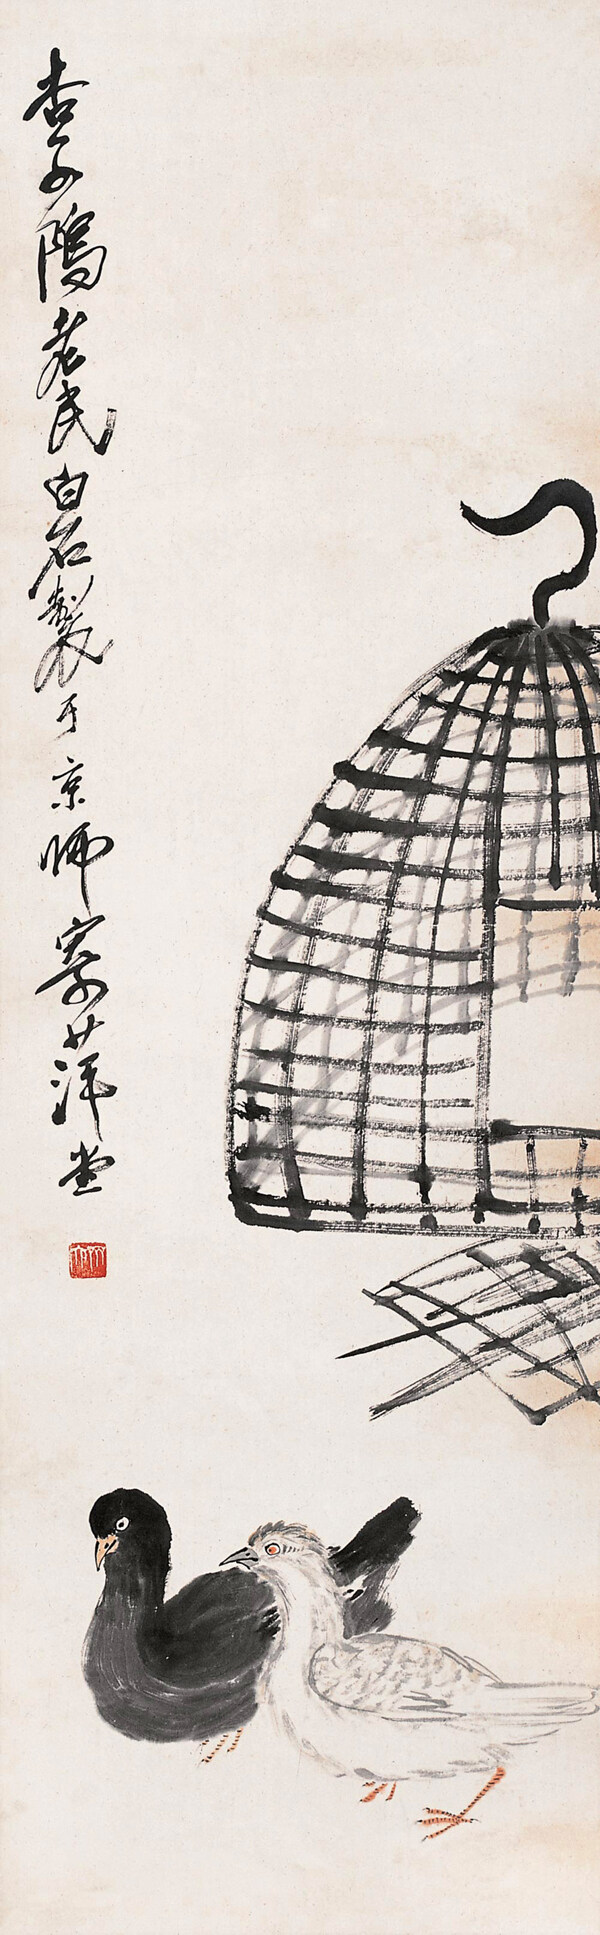 杏子隖老民白石製于京师寄萍堂